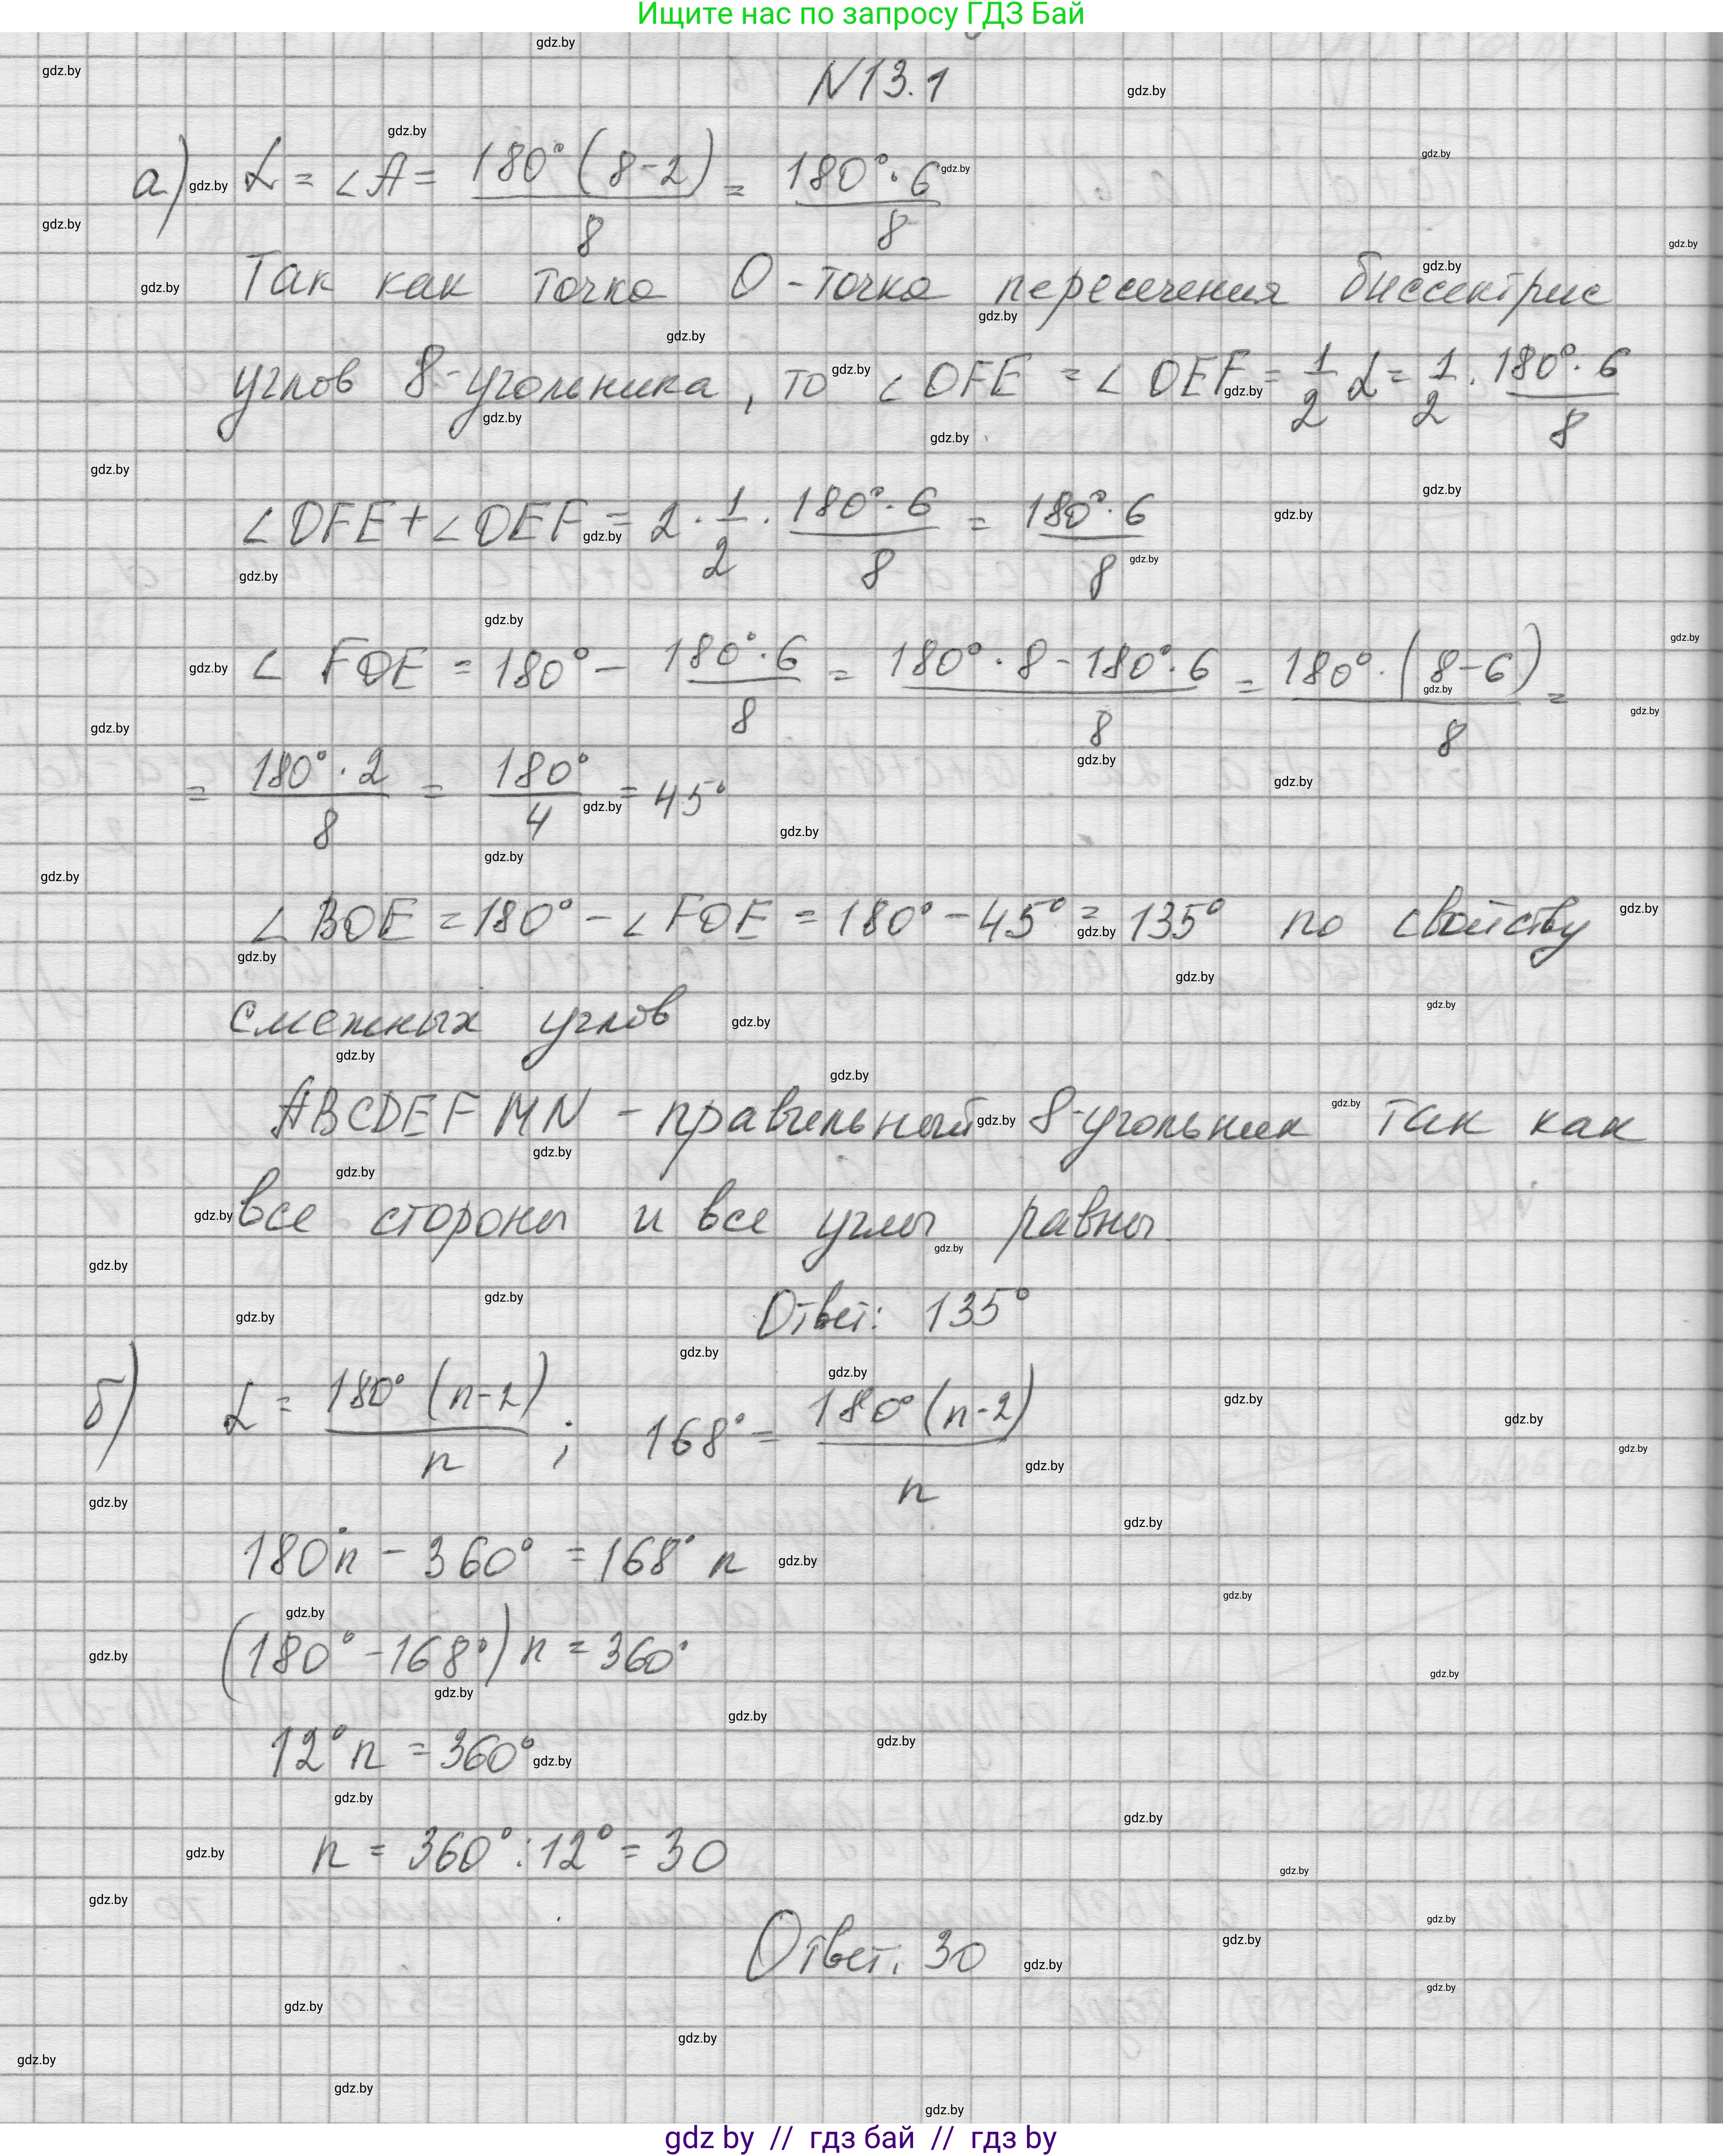 Ищите нас по запросу ГДЗ Бай
N13.1
а) α = ∠A = 180°(8-2)/8 = 180°·6/8
Так как точка O - точка пересечения биссектрис
углов 8-угольника, то ∠OFE = ∠OEF = 1/2 α = 1/2 · 180°·6/8
∠OFE + ∠OEF = 2 · 1/2 · 180°·6/8 = 180°·6/8
∠ FOE = 180° - 180°·6/8 = 180°·8-180°·6/8 = 180°·(8-6)/8 =
= 180°·2/8 = 180°/4 = 45°
∠ BOE = 180° - ∠ FOE = 180° - 45° = 135° по свойству
смежных углов
ABCDEFMN - правильный 8-угольник так как
все стороны и все углы равны.
Ответ: 135°
б) α = 180°(n-2)/n ; 168° = 180°(n-2)/n
180°n - 360° = 168° n
(180° - 168°) n = 360°
12° n = 360°
n = 360° : 12° = 30
Ответ: 30
gdz by // гдз бай // гдз by